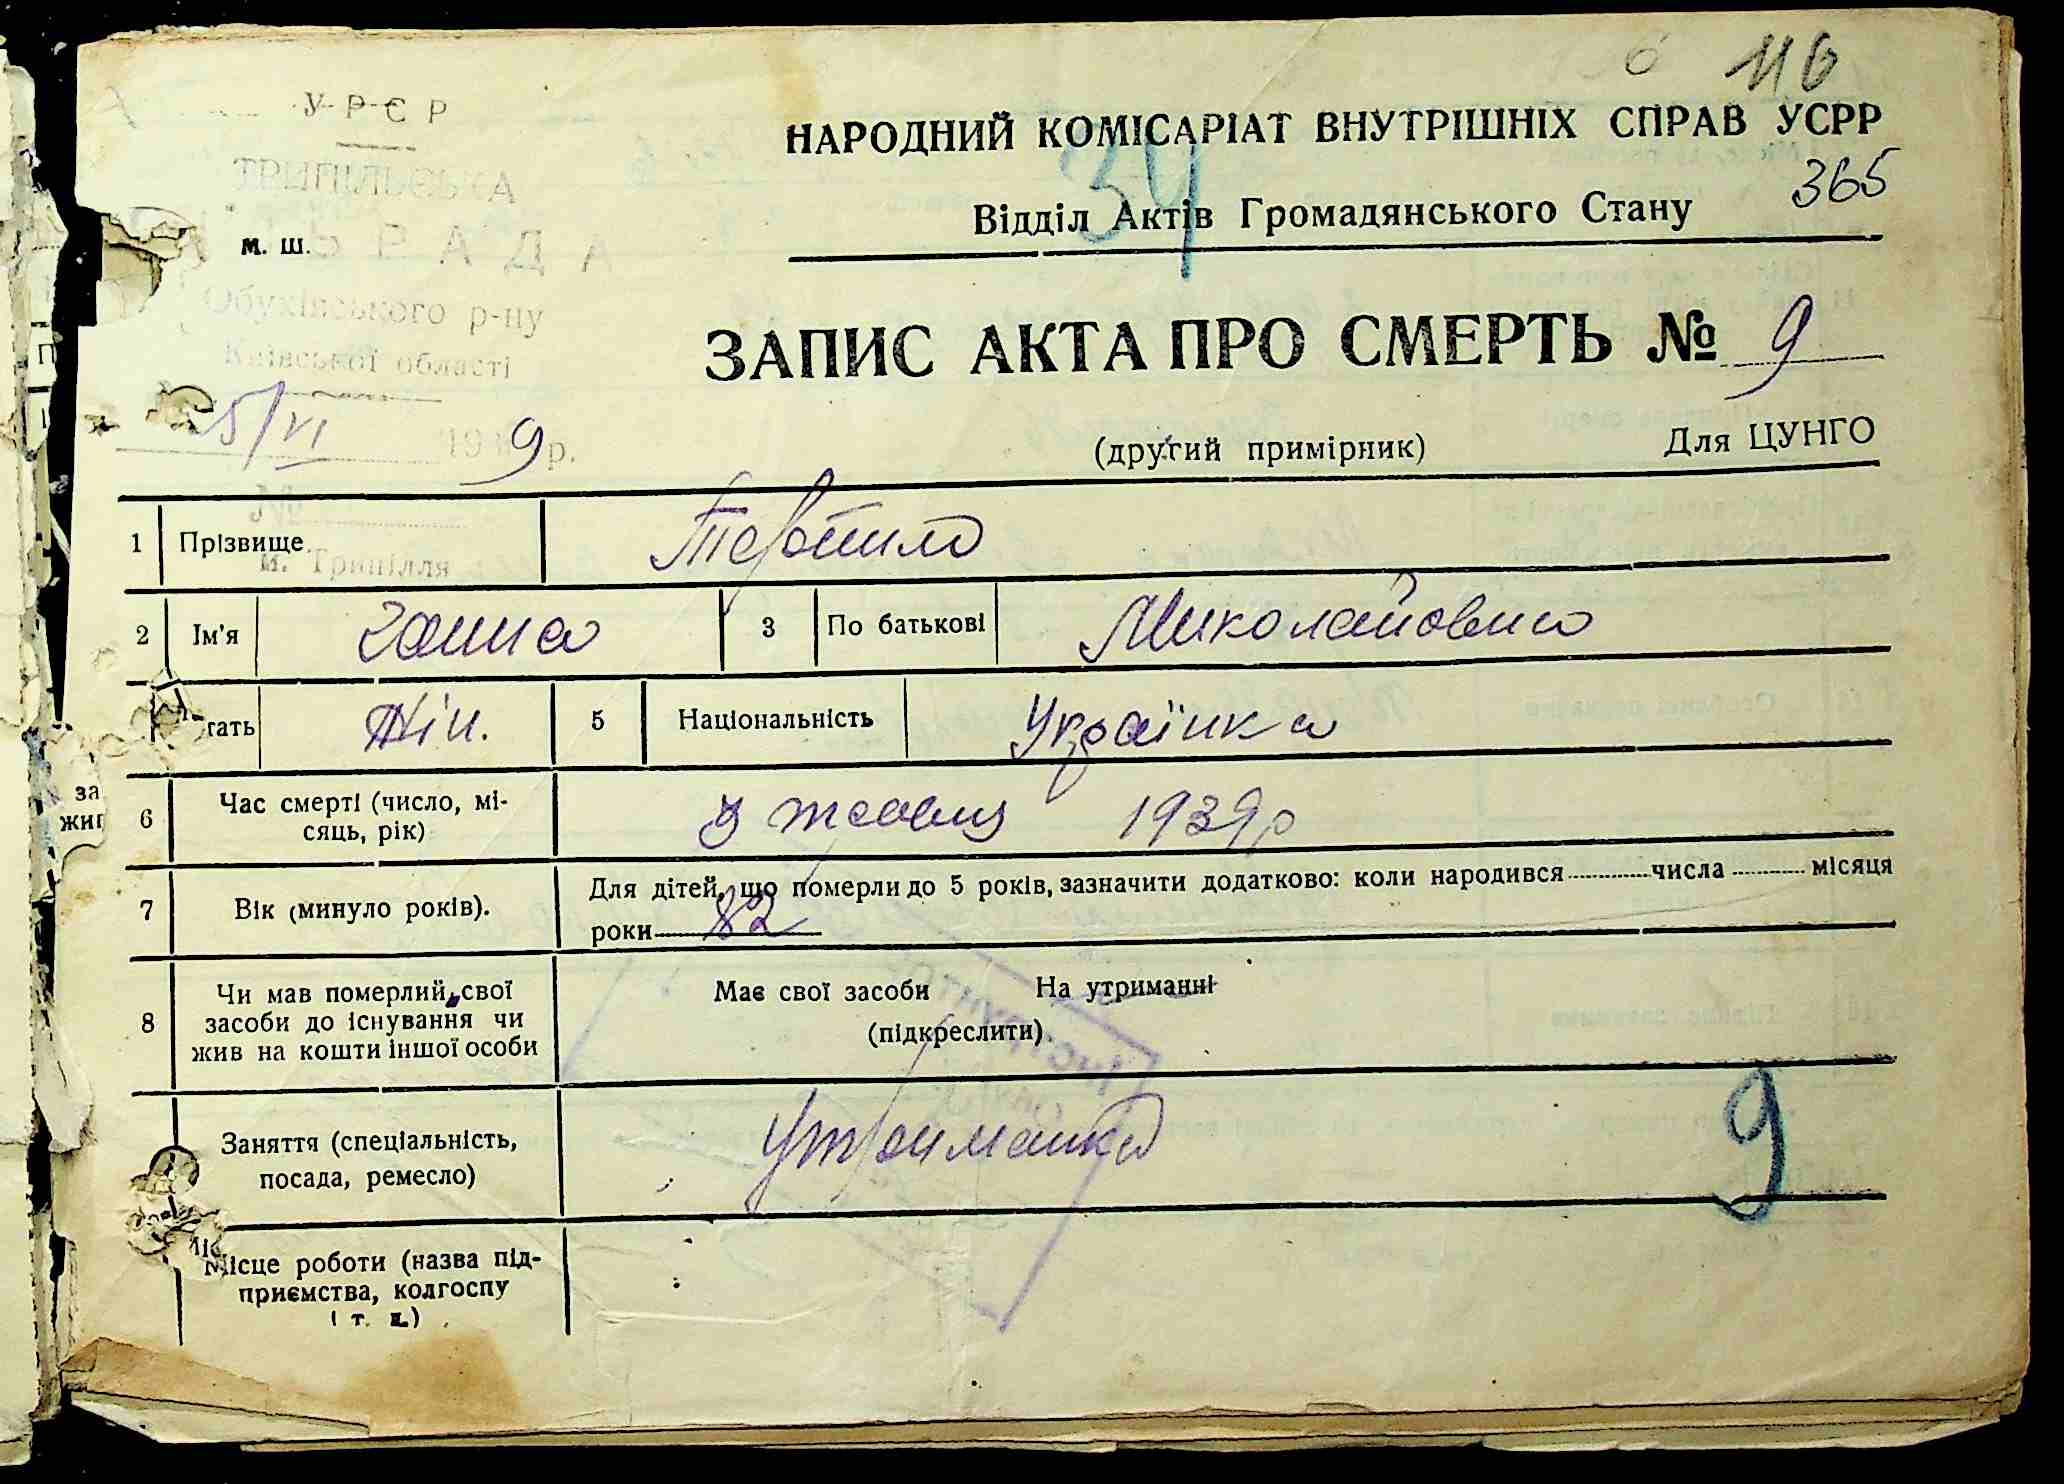 116
У Р Є Р
НАРОДНИЙ КОМІСАРІАТ ВНУТРІШНІХ СПРАВ УСРР
34
365
ТРИПІЛЬСЬКА
Відділ Актів Громадянського Стану
м. ш.
РАДА
Обухівського р-ну
Київської області
ЗАПИС АКТА ПРО СМЕРТЬ № 9
5/VI 1939 р.
(другий примірник) Для ЦУНГО
№
1 Прізвище Тертило
м. Трипілля
2 Ім’я Ганна 3 По батькові Миколаївна
гать Жін. 5 Національність Українка
6 Час смерті (число, мі-
сяць, рік)
1939р
7 Вік (минуло років).
Для дітей, що померли до 5 років, зазначити додатково: коли народився числа місяця
роки 82
8 Чи мав померлий свої
засоби до існування чи
жив на кошти іншої особи
Має свої засоби На утриманні
(підкреслити)
Заняття (спеціальність,
посада, ремесло)
Утриманка
9
Місце роботи (назва під-
приємства, колгоспу
і т. д.)
за
жит